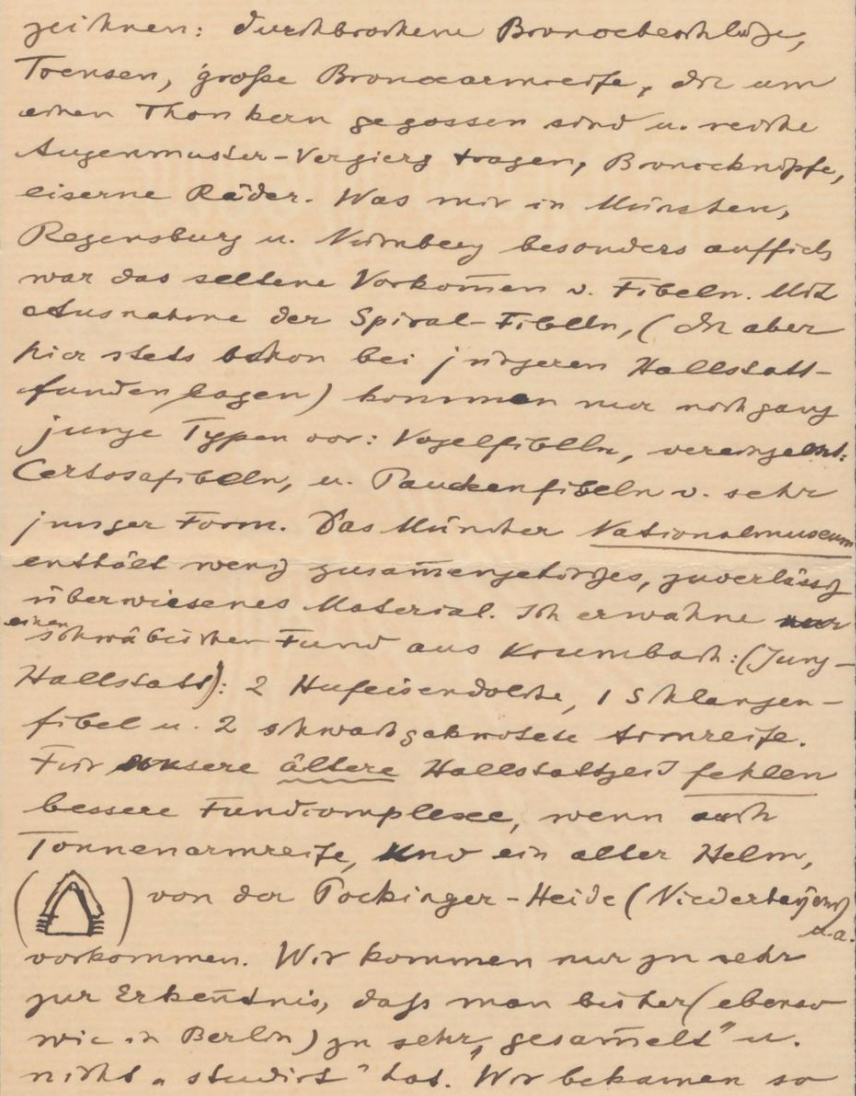 zeichnen: durchbrochene Bronzebeschläge,
Toensen, große Bronzearmreife, die um
einen Thonkern gegossen sind u. reiche
Augenmuster-Verzierg tragen, Bronzeknöpfe,
eiserne Räder. Was mir in München,
Regensburg u. Nürnberg besonders auffiel,
war das seltene Vorkom̄en v. Fibeln. Mit
Ausnahme der Spiral-Fibeln, (die aber
hier stets schon bei jüngeren Hallstatt-
funden lagen) kommen nur noch ganz
junge Typen vor: Vogelfibeln, vereinzelt:
Certosafibeln, u. Paukenfibeln v. sehr
junger Form. Das Müncher Nationalmuseum
enthält wenig zusam̄engehöriges, zuverlässig
überwiesenes Material. Ich erwähne
einen
schwäbischen Fund aus Krumbach: (Jung-
Hallstatt): 2 Hufeisendolche, 1 Schlangen-
fibel u. 2 schwach geknotete Armreife.
Für unsere ältere Hallstattzeit fehlen
bessere Fundcomplexe, wenn auch
Tonnenarmreife, und ein alter Helm,
( ) von der Pockinger-Heide (Niederbayern)
u.a.
vorkommen. Wir kommen nur zu sehr
zur Erken̄tnis, daß man bisher (ebenso
wie in Berlin) zu sehr „gesam̄elt" u.
nicht „studirt" hat. Wir bekamen so